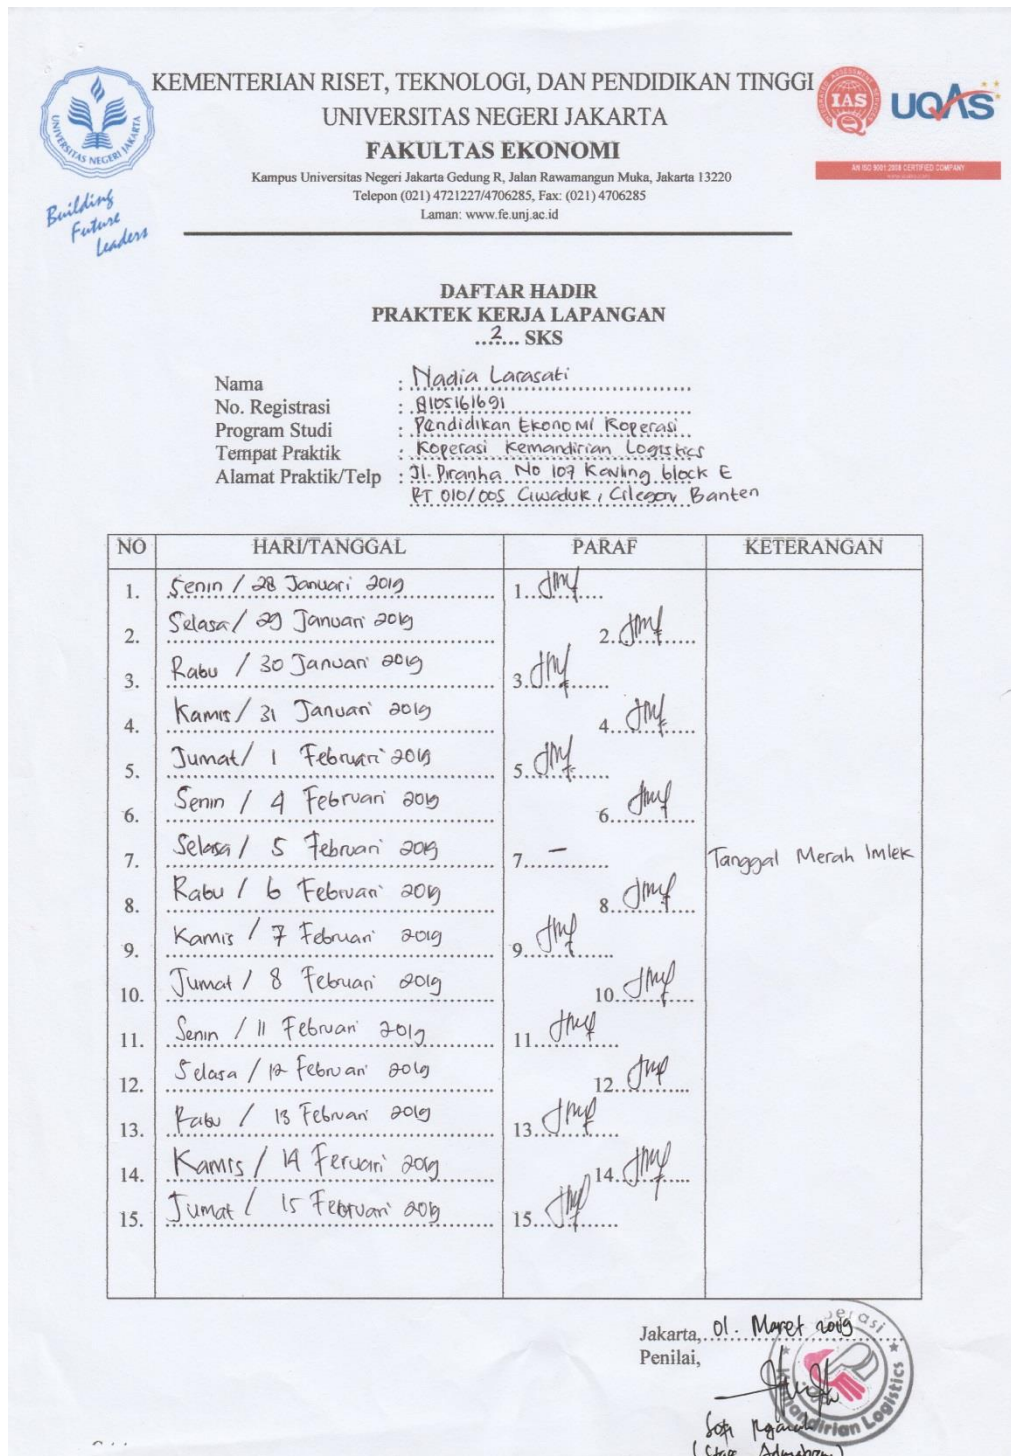 KEMENTERIAN RISET, TEKNOLOGI, DAN PENDIDIKAN TINGGI
UNIVERSITAS NEGERI JAKARTA
FAKULTAS EKONOMI
Kampus Universitas Negeri Jakarta Gedung R, Jalan Rawamangun Muka, Jakarta 13220
Telepon (021) 4721227/4706285, Fax: (021) 4706285
Laman: www.fe.unj.ac.id
UNIVERSITAS NEGERI JAKARTA
Building
Future
Leaders
IAS
UQAS
AN ISO 9001:2008 CERTIFIED COMPANY
DAFTAR HADIR
PRAKTEK KERJA LAPANGAN
...2... SKS
Nama : Nadia Larasati
No. Registrasi : 8105161691
Program Studi : Pendidikan Ekonomi Koperasi
Tempat Praktik : Koperasi Kemandirian Logistics
Alamat Praktik/Telp : Jl. Piranha No 107 Kavling block E
RT 010/005 Ciwaduk, Cilegon, Banten
NO HARI/TANGGAL PARAF KETERANGAN
1. Senin / 28 Januari 2019 1.
2. Selasa / 29 Januari 2019 2.
3. Rabu / 30 Januari 2019 3.
4. Kamis / 31 Januari 2019 4.
5. Jumat / 1 Februari 2019 5.
6. Senin / 4 Februari 2019 6.
7. Selasa / 5 Februari 2019 7. - Tanggal Merah Imlek
8. Rabu / 6 Februari 2019 8.
9. Kamis / 7 Februari 2019 9.
10. Jumat / 8 Februari 2019 10.
11. Senin / 11 Februari 2019 11.
12. Selasa / 12 Februari 2019 12.
13. Rabu / 13 Februari 2019 13.
14. Kamis / 14 Feruari 2019 14.
15. Jumat / 15 Februari 2019 15.
Jakarta, 01. Maret 2019
Penilai,
Kemandirian Logistics